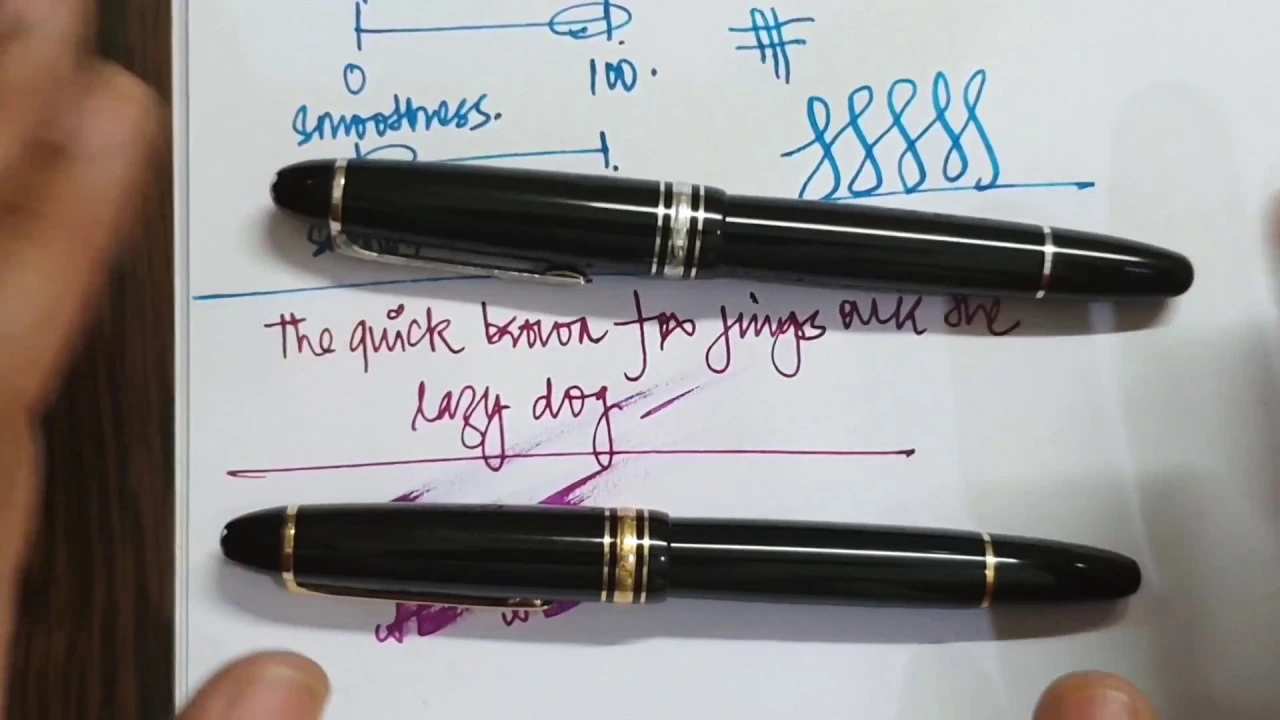 0 100.
smoothness.
The quick brown fox jings
lazy dog